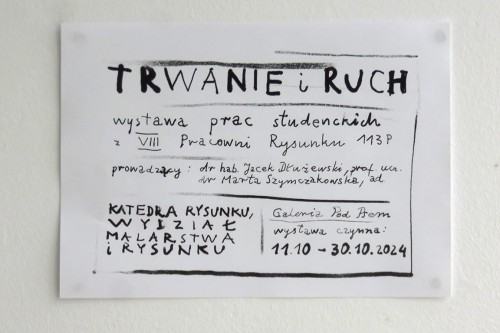 TRWANIE i RUCH
wystawa prac studenckich
z VIII Pracowni Rysunku 113P
prowadzący: dr hab. Jacek Dłużewski, prof. ucz.
dr Marta Szymczakowska, ad.
KATEDRA RYSUNKU,
WYDZIAŁ
MALARSTWA
i RYSUNKU
Galeria Pod Psem
wystawa czynna:
11.10 - 30.10.2024